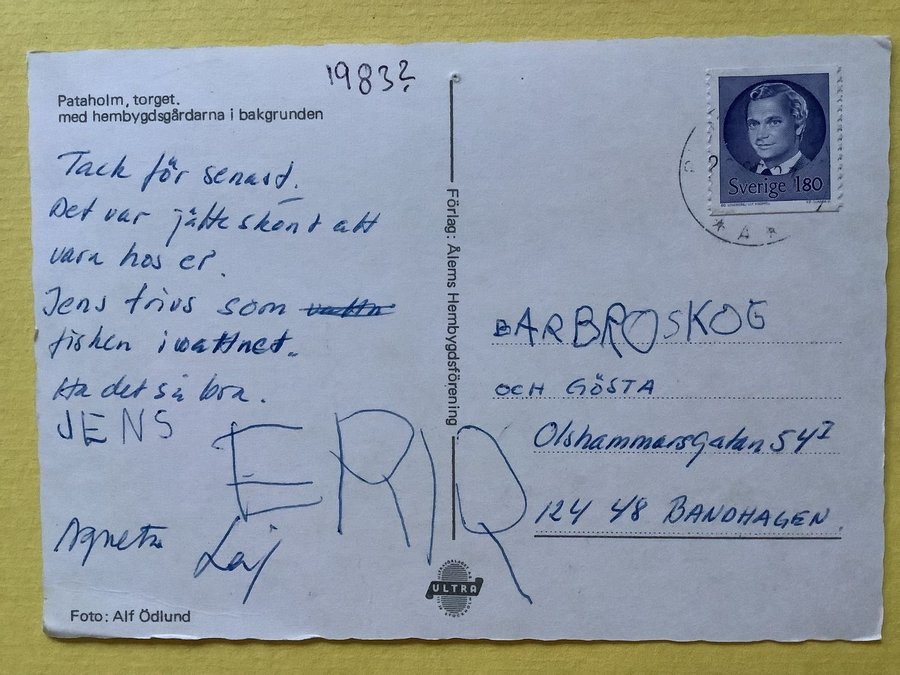 1983?
Pataholm, torget.
med hembygdsgårdarna i bakgrunden
Tack för senast.
Det var jätteskönt att
vara hos er.
Jens trivs som vattn
fisken i vattnet.
Ha det så bra.
JENS
ERIQ
Agneta
Laj
Foto: Alf Ödlund
Förlag: Ålems Hembygdsförening
ULTRA
Sverige 180
BARBRO SKOG
OCH GÖSTA
Olshammarsgatan 54 I
124 48 BANDHAGEN.